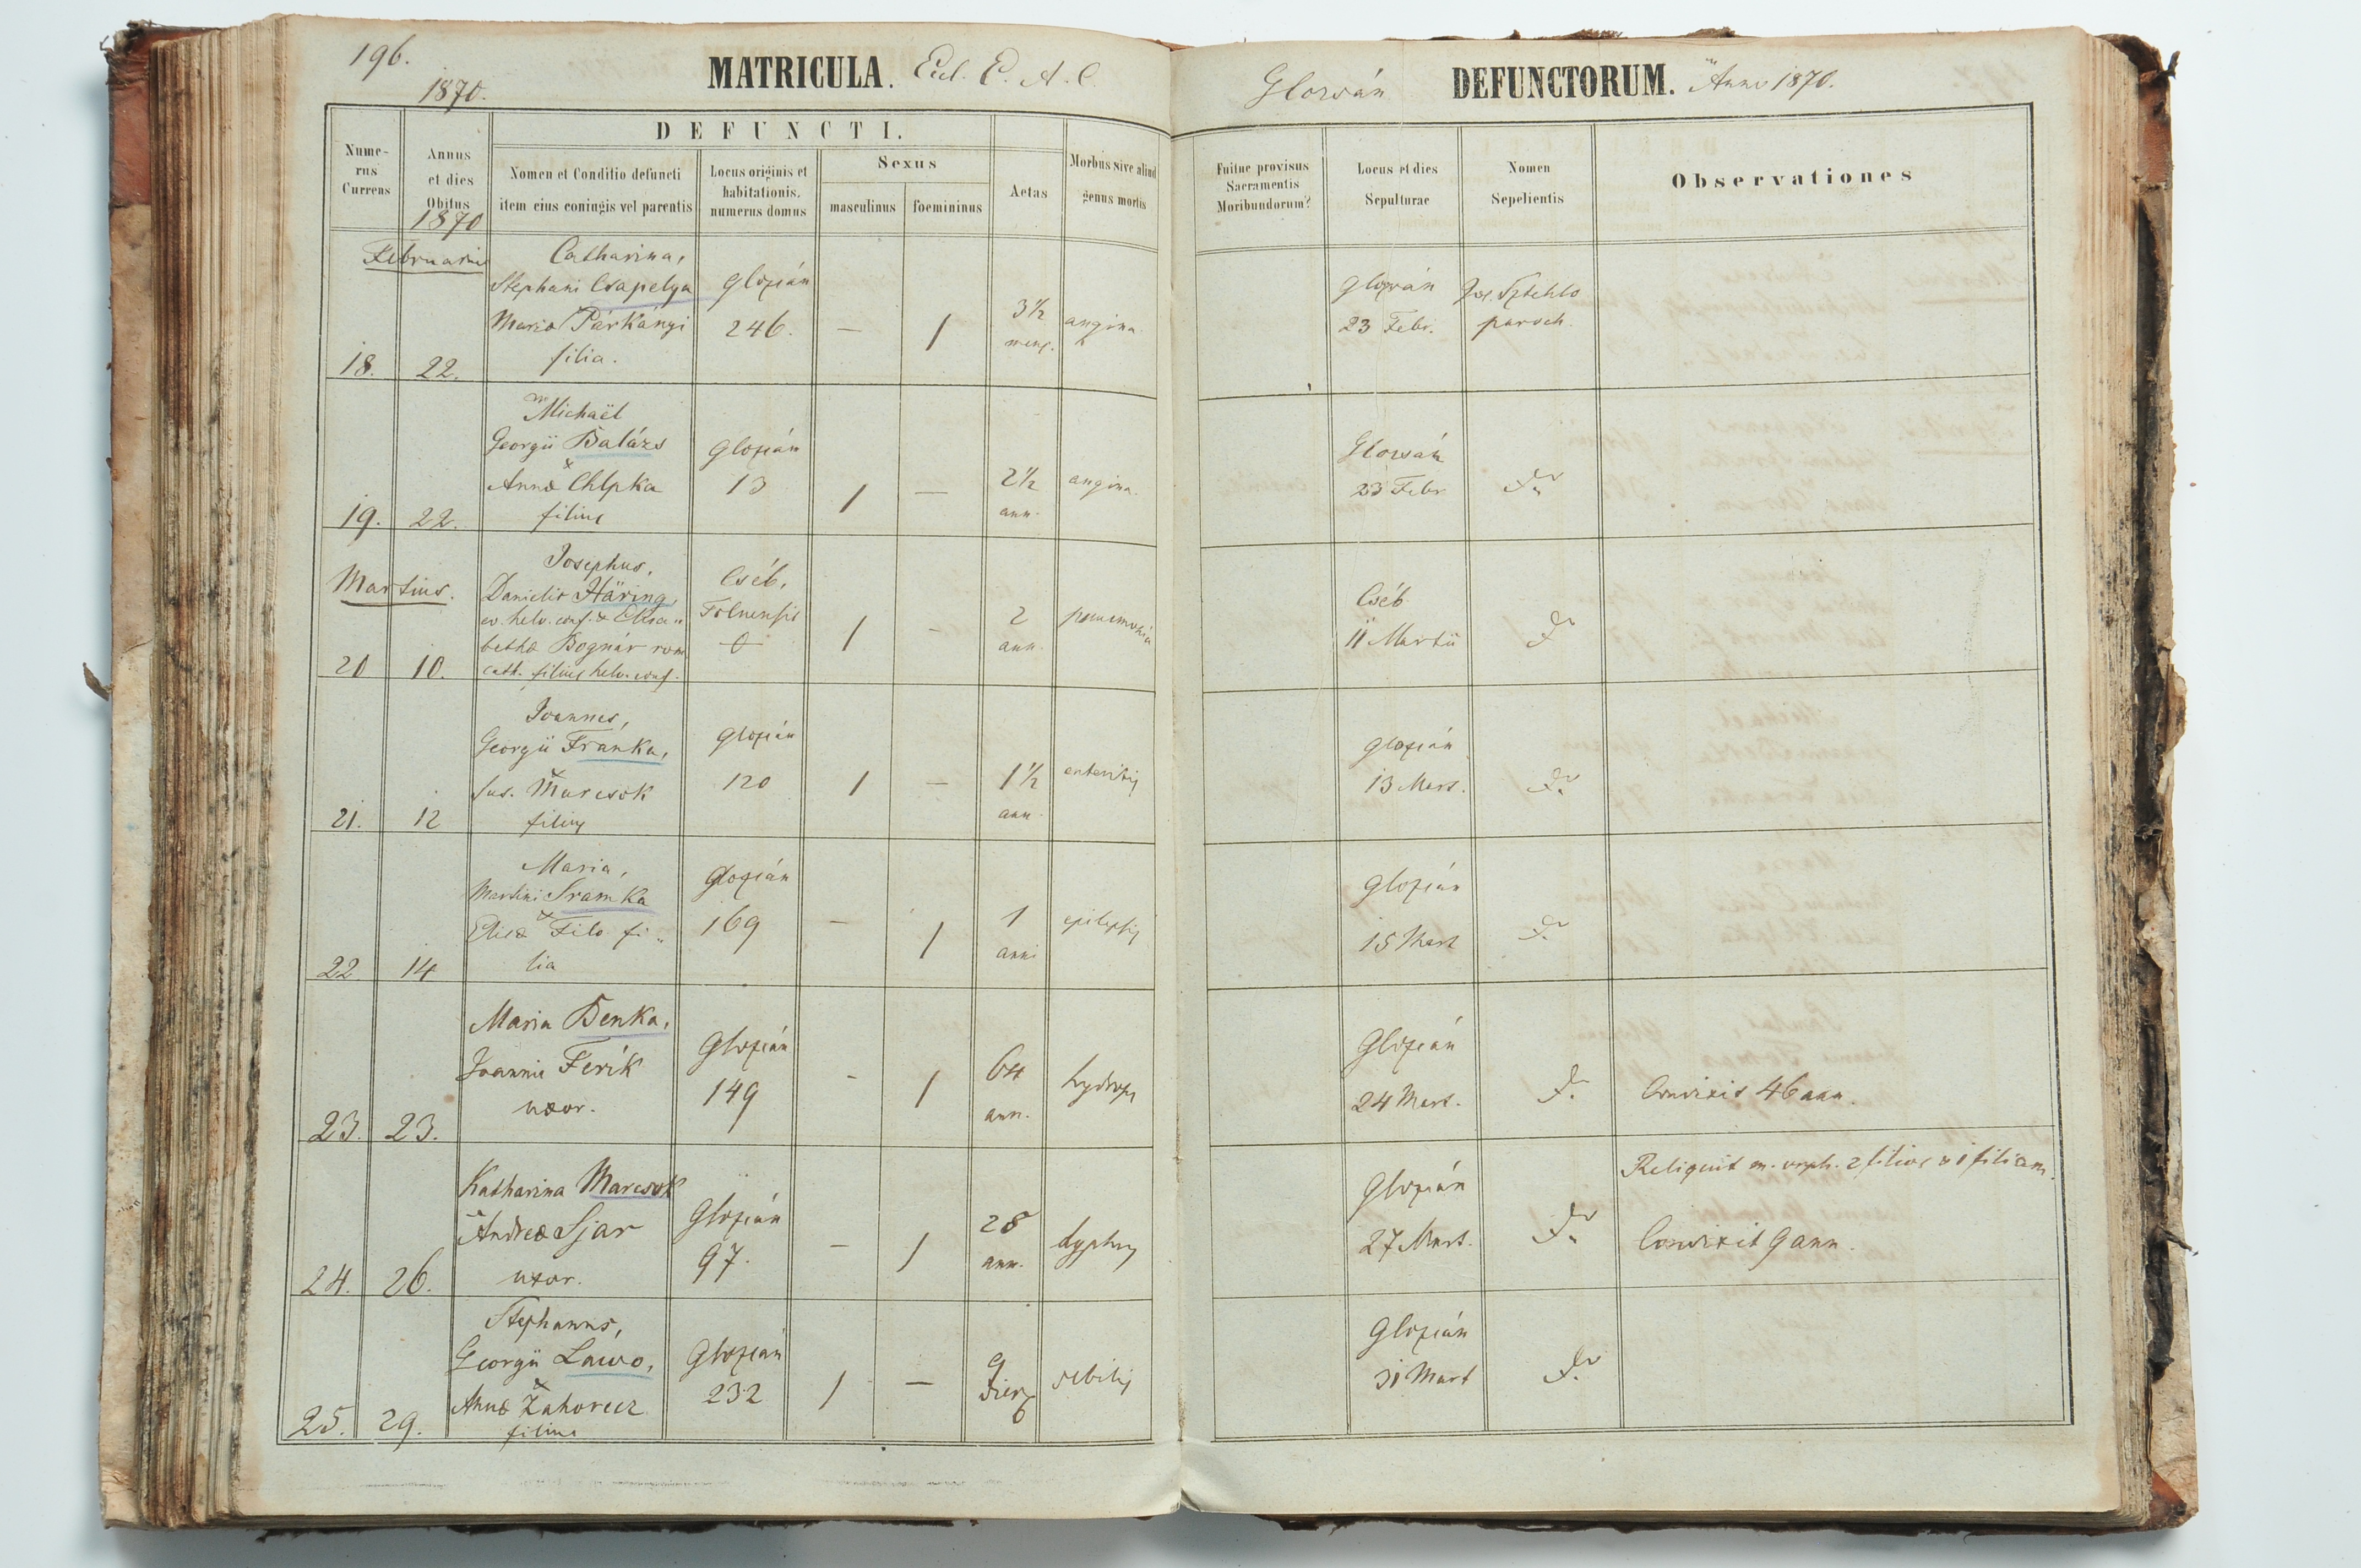 196.
1870.
MATRICULA. Eccl. E. A. C.
Glozsán DEFUNCTORUM. Anno 1870.
DEFUNCTI.
Nume-
rus
Currens
Annus
et dies
Obitus
1870
Nomen et Conditio defuncti
item eius coniugis vel parentis
Locus originis et
habitationis.
numerus domus
Sexus
masculinus
foemininus
Aetas
Morbus sive aliud
genus mortis
Fuitne provisus
Sacramentis
Moribundorum?
Locus et dies
Sepulturae
Nomen
Sepelientis
Observationes
Februarius
18.
22.
Catharina,
Stephani Csapelya
Mariæ Párkányi
filia.
Glozsán
246.
—
1
3½
mens.
angina
Glozsán
23 Febr.
Jos. Sztehlo
paroch.
19.
22.
Michaël
Georgii Balázs
&
Annæ Chlpka
filius
Glozsán
13
1
—
2½
ann.
angina.
Glozsán
23 Febr
Martius.
20
10.
Josephus,
Danielis Häring
ev. helv. conf. & Elisa„
bethæ Bognár rom
cath. filius helv. conf.
Cséb,
Tolnensis
0
1
-
2
ann.
pneumonia
Cséb.
11 Martii
21.
12
Joannes,
Georgii Franka,
&
Sus. Marcsok
filius
Glozsán
120
1
—
1½
ann.
enteritis
Glozsán
13 Mart.
22
14
Maria,
Martini Sramka
&
Elisæ Filo fi„
lia
Glozsán
169
—
1
1
anni
epilepsis
Glozsán
15 Mart
23.
23.
Maria Benka,
Joannis Ferik
uxor.
Glozsán
149
-
1
64
ann.
hydrops
Glozsán
24 Mart.
Convixit 46 ann.
24.
26.
Katharina Marcsok
Andreæ Sjar
uxor.
Glozsán
97.
—
1
28
ann.
typhus
Glozsán
27 Mart.
Reliquit m. orph. 2 filios & 1 filiam.
Convixit 9 ann.
25.
29.
Stephanus,
Georgii Lawo,
&
Annæ Zahorecz
filius
Glozsán
232
1
—
9
dier
debilis
Glozsán
31 Mart